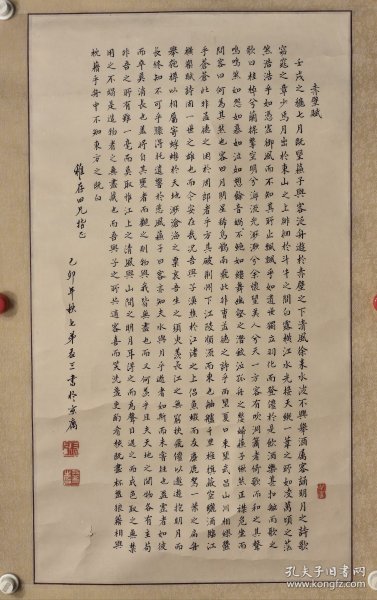 赤壁賦
壬戌之秋七月既望蘇子與客泛舟遊於赤壁之下清風徐來水波不興舉酒屬客誦明月之詩歌
窈窕之章少焉月出於東山之上徘徊於斗牛之間白露橫江水光接天縱一葦之所如凌萬頃之茫
然浩浩乎如憑虛御風而不知其所止飄飄乎如遺世獨立羽化而登僊於是飲酒樂甚扣舷而歌之
歌曰桂棹兮蘭槳擊空明兮泝流光渺渺兮余懷望美人兮天一方客有吹洞簫者倚歌而和之其聲
嗚嗚然如怨如慕如泣如訴餘音嫋嫋不絕如縷舞幽壑之潛蛟泣孤舟之嫠婦蘇子愀然正襟危坐而
問客曰何為其然也客曰月明星稀烏鵲南飛此非曹孟德之詩乎西望夏口東望武昌山川相繆鬱
乎蒼蒼此非孟德之困於周郎者乎方其破荊州下江陵順流而東也舳艫千里旌旗蔽空釃酒臨江
橫槊賦詩固一世之雄也而今安在哉況吾與子漁樵於江渚之上侶魚蝦而友麋鹿駕一葉之扁舟
舉匏樽以相屬寄蜉蝣於天地渺滄海之一粟哀吾生之須臾羨長江之無窮挾飛僊以遨遊抱明月而
長終知不可乎驟得託遺響於悲風蘇子曰客亦知夫水與月乎逝者如斯而未嘗往也盈虛者如彼
而卒莫消長也蓋將自其變者而觀之則物與我皆無盡也而又何羨乎且夫天地之間物各有主苟
非吾之所有雖一毫而莫取惟江上之清風與山間之明月耳得之而為聲目遇之而成色取之無禁
用之不竭是造物者之無盡藏也而吾與子之所共適客喜而笑洗盞更酌肴核既盡杯盤狼藉相與
枕藉乎舟中不知東方之既白
兄指正
己卯年秋 弟 三書於京寓
孔夫子旧书网